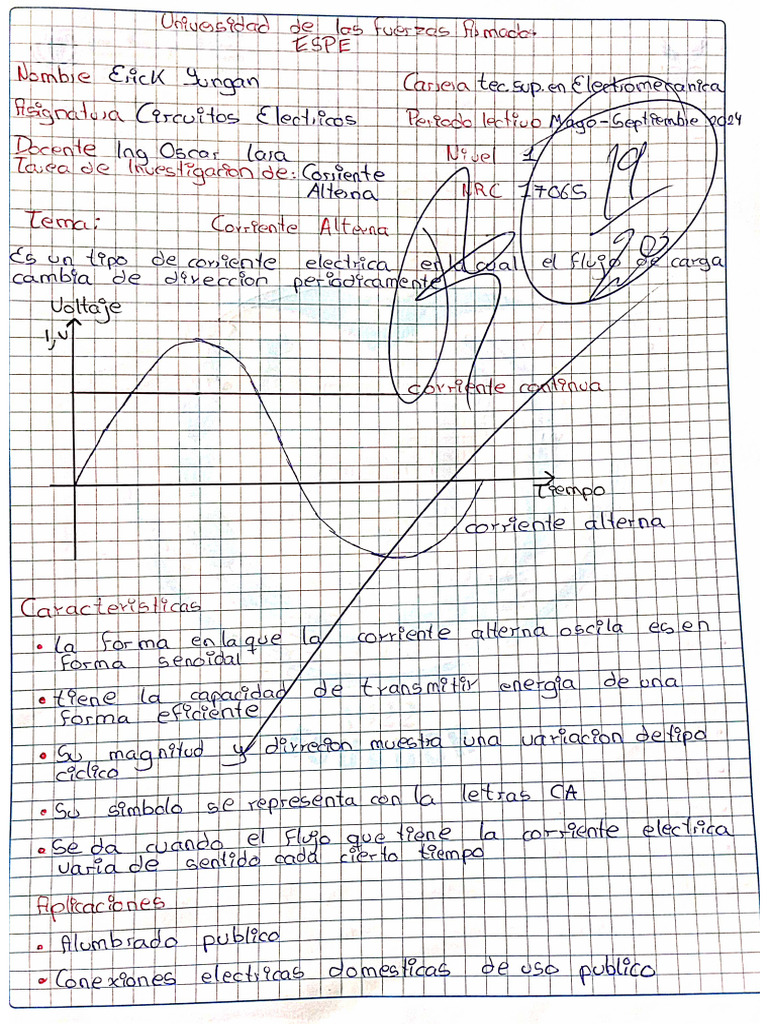 Universidad de las Fuerzas Armadas
ESPE
Nombre Erick Yungan Carrera tec.sup.en Electromecanica
Asignatura Circuitos Electricos Periodo lectivo Mayo-Septiembre 2024
Docente Ing Oscar lara Nivel 1
Tarea de Investigacion de: Corriente Alterna NRC 17065
Tema: Corriente Alterna
Es un tipo de corriente electrica en la cual el flujo de carga
cambia de direccion periodicamente
Voltaje
I,V
corriente continua
Tiempo
corriente alterna
Caracteristicas
• la forma en la que la corriente alterna oscila es en
forma senoidal
• tiene la capacidad de transmitir energia de una
forma eficiente
• Su magnitud y dirrecion muestra una variacion de tipo
ciclico
• Su simbolo se representa con la letras CA
• Se da cuando el flujo que tiene la corriente electrica
varia de sentido cada cierto tiempo
Aplicaciones
• Alumbrado publico
• Conexiones electricas domesticas de uso publico